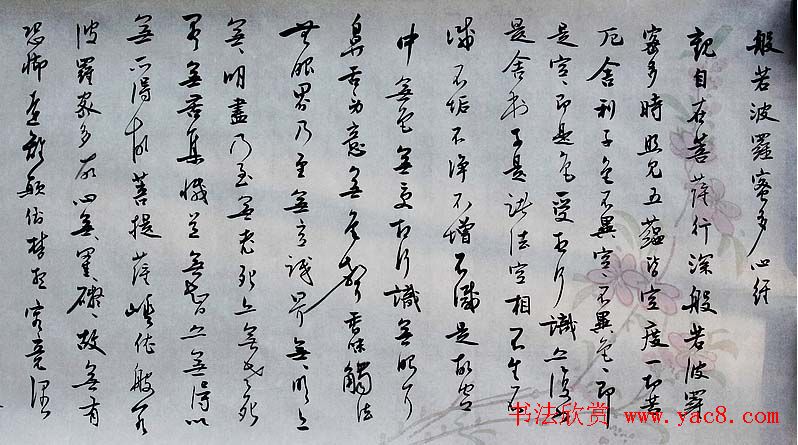 般若波羅蜜多心經
觀自在菩薩行深般若波羅
蜜多時照見五蘊皆空度一切苦
厄舍利子色不異空空不異色色即
是空空即是色受想行識亦復如
是舍利子是諸法空相不生不
滅不垢不淨不增不減是故空
中無色無受想行識無眼耳
鼻舌身意無色聲香味觸法
無眼界乃至無意識界無無明亦
無無明盡乃至無老死亦無老死
盡無苦集滅道無智亦無得以
無所得故菩提薩埵依般若
波羅蜜多故心無罣礙無罣礙故無有
恐怖遠離顛倒夢想究竟涅
书法欣赏 www.yac8.com